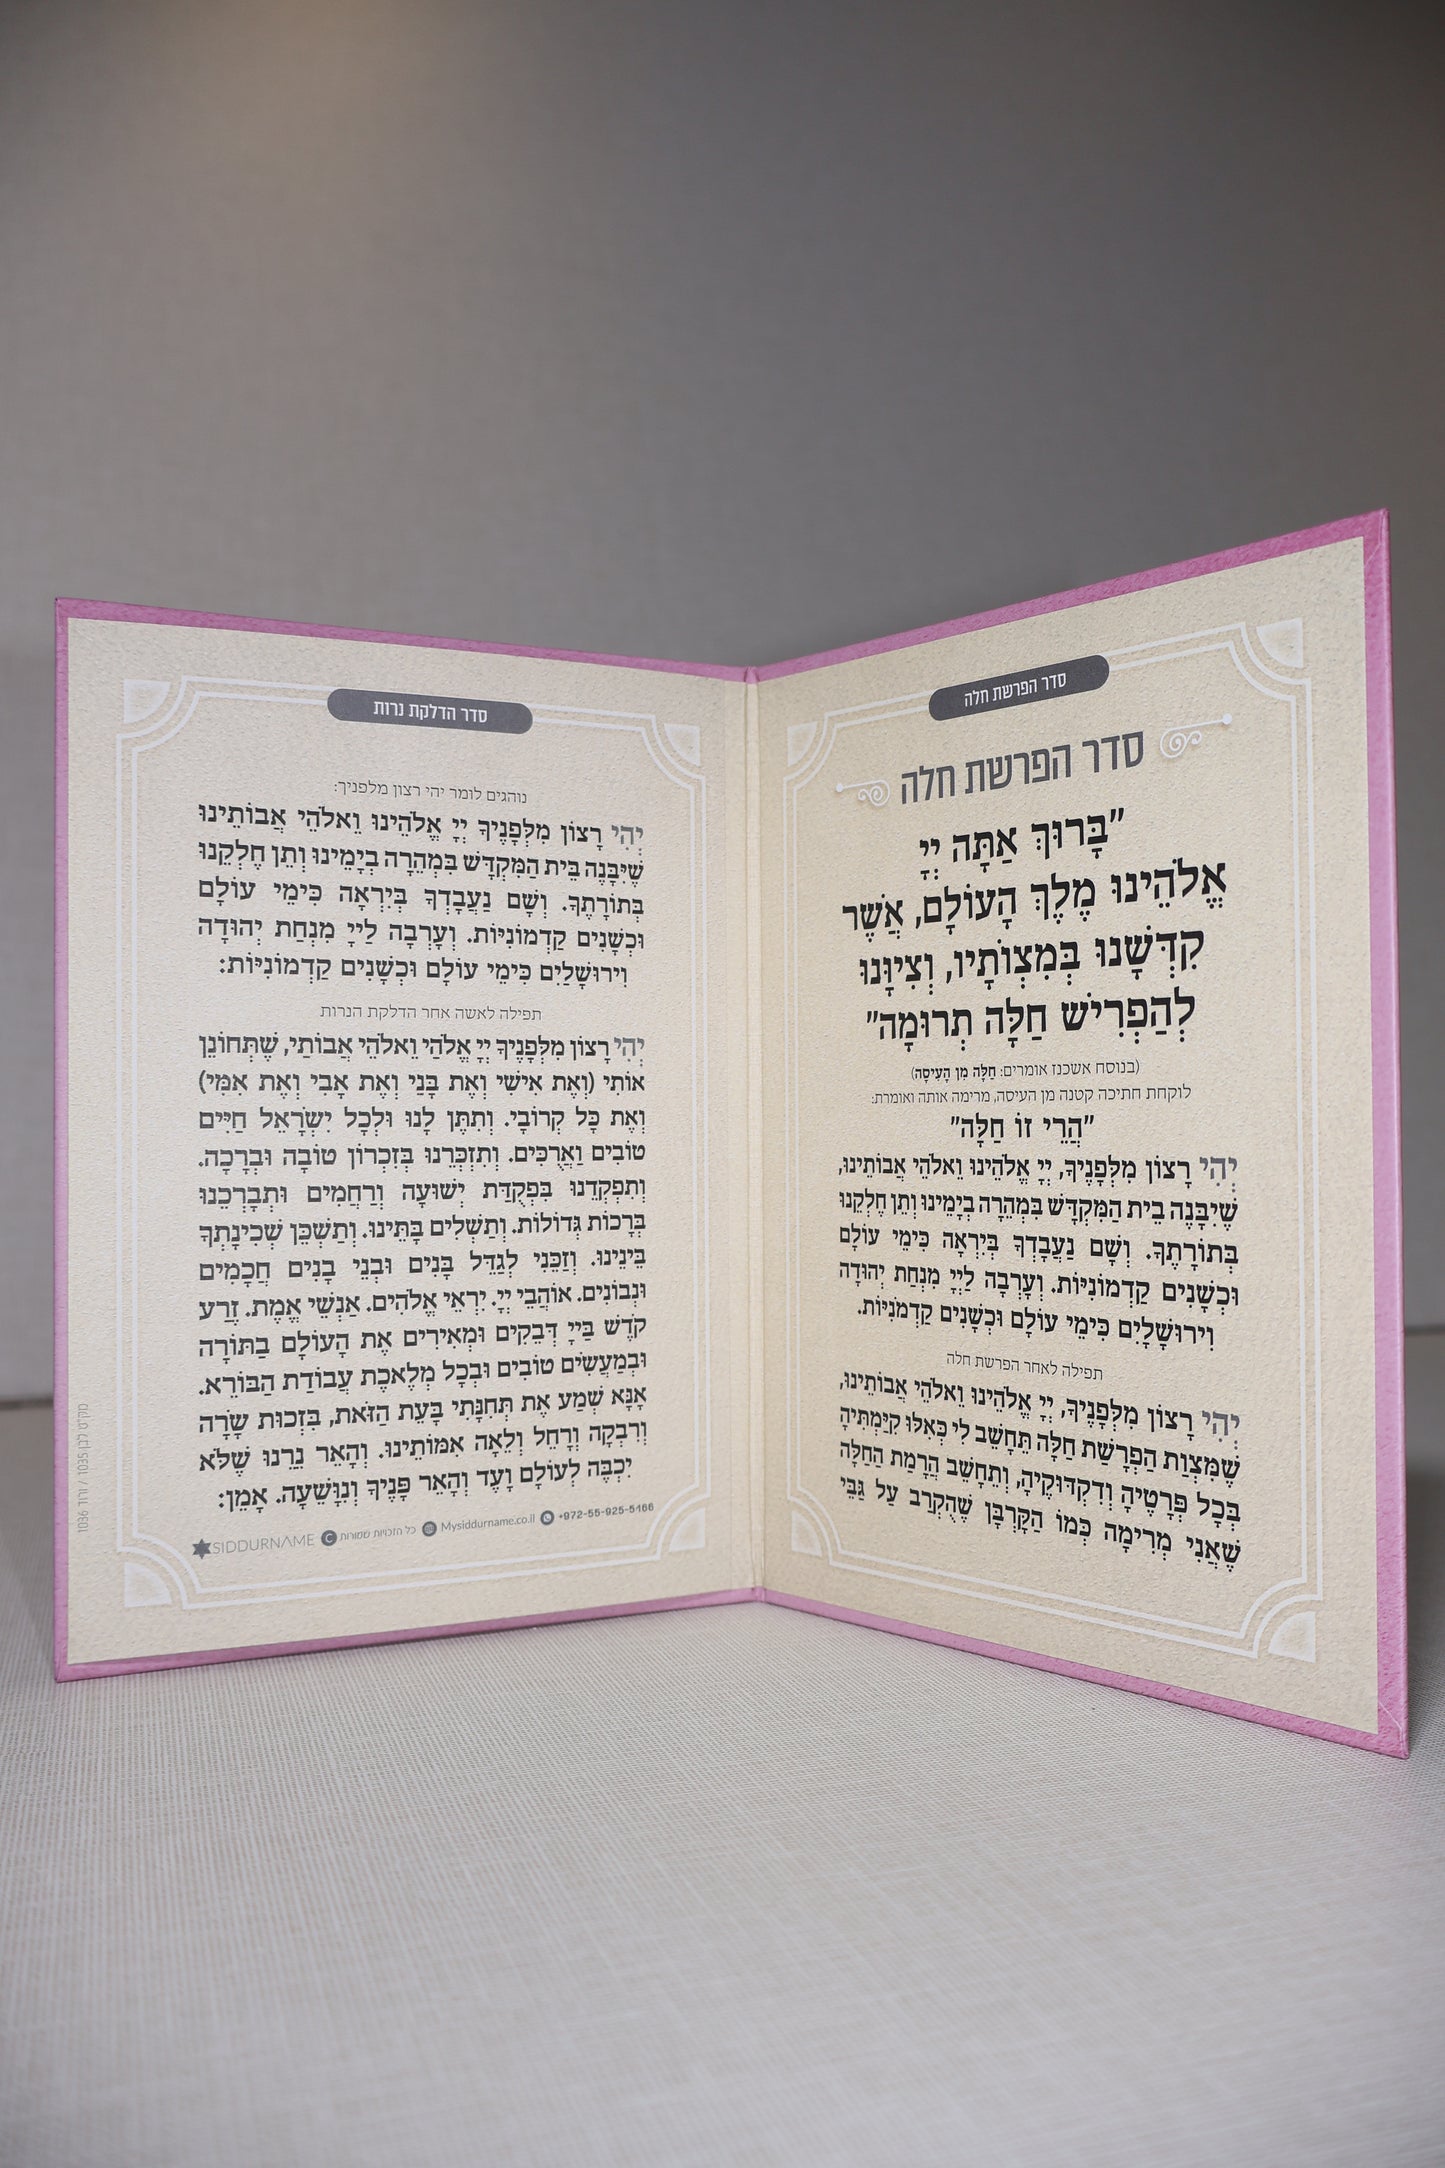 סדר הפרשת חלה
סדר הפרשת חלה
"בָּרוּךְ אַתָּה יְיָ
אֱלֹהֵינוּ מֶלֶךְ הָעוֹלָם, אֲשֶׁר
קִדְּשָׁנוּ בְּמִצְוֹתָיו, וְצִיוָּנוּ
לְהַפְרִישׁ חַלָּה תְרוּמָה"
(בנוסח אשכנז אומרים: חַלָּה מִן הָעִיסָה)
לוקחת חתיכה קטנה מן העיסה, מרימה אותה ואומרת:
"הֲרֵי זוֹ חַלָּה"
יְהִי רָצוֹן מִלְּפָנֶיךָ, יְיָ אֱלֹהֵינוּ וֵאלֹהֵי אֲבוֹתֵינוּ,
שֶׁיִּבָּנֶה בֵּית הַמִּקְדָּשׁ בִּמְהֵרָה בְיָמֵינוּ וְתֵן חֶלְקֵנוּ
בְּתוֹרָתֶךָ. וְשָׁם נַעֲבָדְךָ בְּיִרְאָה כִּימֵי עוֹלָם
וּכְשָׁנִים קַדְמוֹנִיּוֹת. וְעָרְבָה לַיְיָ מִנְחַת יְהוּדָה
וִירוּשָׁלָיִם כִּימֵי עוֹלָם וּכְשָׁנִים קַדְמֹנִיּוֹת.
תפילה לאחר הפרשת חלה
יְהִי רָצוֹן מִלְּפָנֶיךָ, יְיָ אֱלֹהֵינוּ וֵאלֹהֵי אֲבוֹתֵינוּ,
שֶׁמִּצְוַת הַפְרָשַׁת חַלָּה תֵּחָשֵׁב לִי כְּאִלּוּ קִיַּמְתִּיהָ
בְּכָל פְּרָטֶיהָ וְדִקְדּוּקֶיהָ, וְתֵחָשֵׁב הֲרָמַת הַחַלָּה
שֶׁאֲנִי מְרִימָה כְּמוֹ הַקָּרְבָּן שֶׁהֻקְרַב עַל גַּבֵּי
סדר הדלקת נרות
נוהגים לומר יהי רצון מלפניך:
יְהִי רָצוֹן מִלְּפָנֶיךָ יְיָ אֱלֹהֵינוּ וֵאלֹהֵי אֲבוֹתֵינוּ
שֶׁיִּבָּנֶה בֵּית הַמִּקְדָּשׁ בִּמְהֵרָה בְיָמֵינוּ וְתֵן חֶלְקֵנוּ
בְּתוֹרָתֶךָ. וְשָׁם נַעֲבָדְךָ בְּיִרְאָה כִּימֵי עוֹלָם
וּכְשָׁנִים קַדְמוֹנִיּוֹת. וְעָרְבָה לַייָ מִנְחַת יְהוּדָה
וִירוּשָׁלַיִם כִּימֵי עוֹלָם וּכְשָׁנִים קַדְמוֹנִיּוֹת:
תפילה לאשה אחר הדלקת הנרות
יְהִי רָצוֹן מִלְּפָנֶיךָ יְיָ אֱלֹהַי וֵאלֹהֵי אֲבוֹתַי, שֶׁתְּחוֹנֵן
אוֹתִי (וְאֶת אִישִׁי וְאֶת בָּנַי וְאֶת אָבִי וְאֶת אִמִּי)
וְאֶת כָּל קְרוֹבָי. וְתִתֶּן לָנוּ וּלְכָל יִשְׂרָאֵל חַיִּים
טוֹבִים וַאֲרֻכִּים. וְתִזְכְּרֵנוּ בְּזִכְרוֹן טוֹבָה וּבְרָכָה.
וְתִפְקְדֵנוּ בִּפְקֻדַּת יְשׁוּעָה וְרַחֲמִים וּתְבָרְכֵנוּ
בְּרָכוֹת גְּדוֹלוֹת. וְתַשְׁלִים בָּתֵּינוּ. וְתַשְׁכֵּן שְׁכִינָתְךָ
בֵּינֵינוּ. וְזַכֵּנִי לְגַדֵּל בָּנִים וּבְנֵי בָנִים חֲכָמִים
וּנְבוֹנִים. אוֹהֲבֵי יְיָ. יִרְאֵי אֱלֹהִים. אַנְשֵׁי אֱמֶת. זֶרַע
קֹדֶשׁ בַּייָ דְּבֵקִים וּמְאִירִים אֶת הָעוֹלָם בַּתּוֹרָה
וּבְמַעֲשִׂים טוֹבִים וּבְכָל מְלֶאכֶת עֲבוֹדַת הַבּוֹרֵא.
אָנָּא שְׁמַע אֶת תְּחִנָּתִי בָּעֵת הַזֹּאת, בִּזְכוּת שָׂרָה
וְרִבְקָה וְרָחֵל וְלֵאָה אִמּוֹתֵינוּ. וְהָאֵר נֵרֵנוּ שֶׁלֹּא
יִכְבֶּה לְעוֹלָם וָעֶד וְהָאֵר פָּנֶיךָ וְנִוָּשֵׁעָה. אָמֵן:
SIDDURNAME כל הזכויות שמורות Mysiddurname.co.il +972-55-925-5166
מק"ט לבן 1035 / ורוד 1036